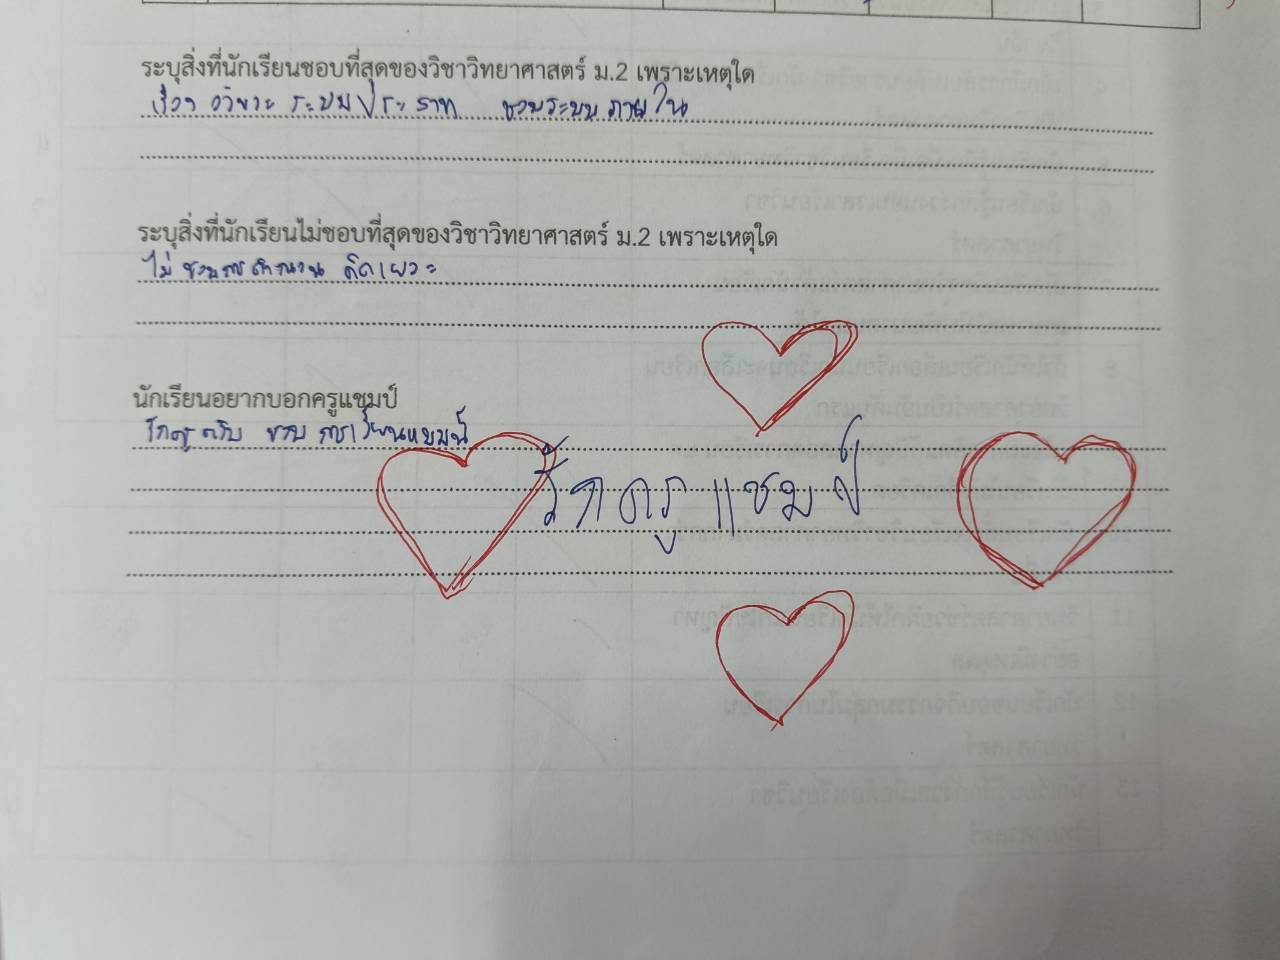 ระบุสิ่งที่นักเรียนชอบที่สุดของวิชาวิทยาศาสตร์ ม.2 เพราะเหตุใด
เรื่อง อวัยวะ ระบบประสาท ชอบระบบภายใน
ระบุสิ่งที่นักเรียนไม่ชอบที่สุดของวิชาวิทยาศาสตร์ ม.2 เพราะเหตุใด
ไม่ ชอบการคำนวน คิดเยอะ
นักเรียนอยากบอกครูแชมป์
รักครู ครับ ชอบ
รักครูแชมป์